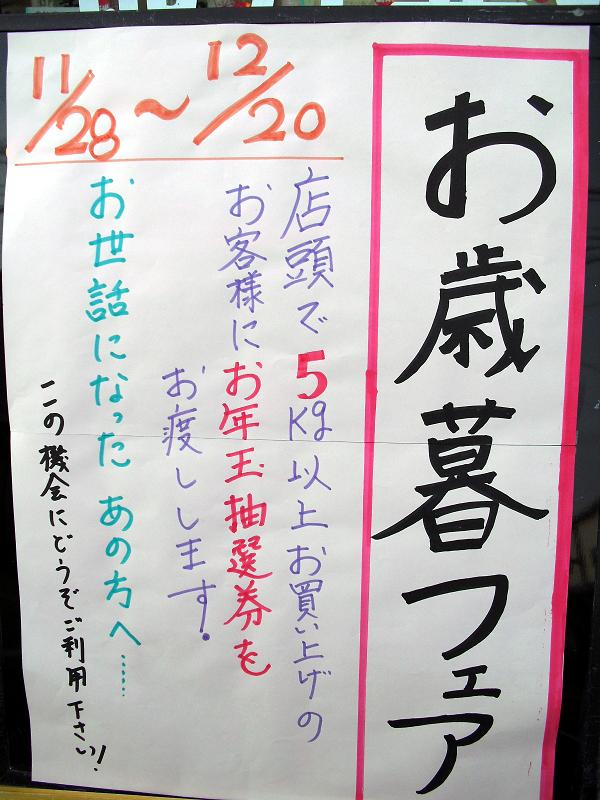 お歳暮フェア
11/28～12/20
店頭で5kg以上お買い上げの
お客様にお年玉抽選券を
お渡しします！
お世話になったあの方へ……
この機会にどうぞご利用下さい！